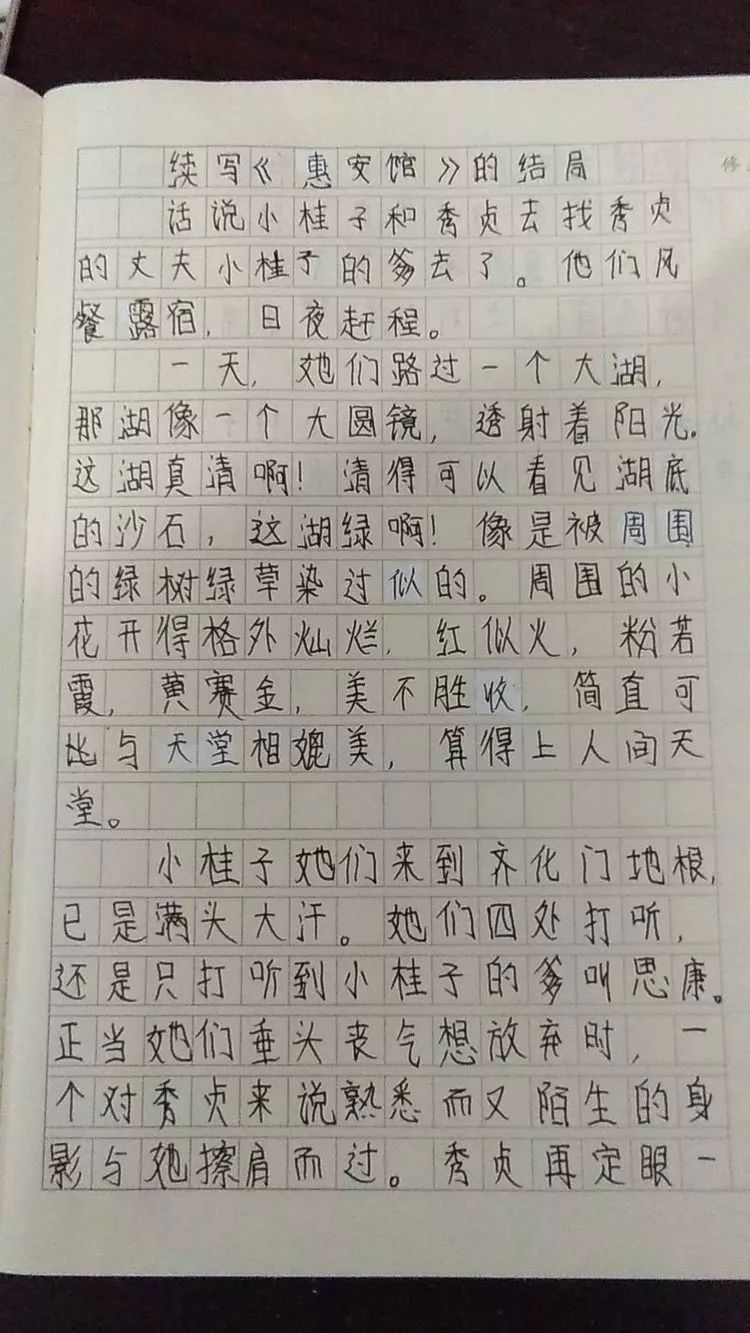 续写《惠安馆》的结局
话说小桂子和秀贞去找秀贞
的丈夫小桂子的爹去了。他们风
餐露宿，日夜赶程。
一天，她们路过一个大湖，
那湖像一个大圆镜，透射着阳光.
这湖真清啊！清得可以看见湖底
的沙石，这湖绿啊！像是被周围
的绿树绿草染过似的。周围的小
花开得格外灿烂，红似火，粉若
霞，黄赛金，美不胜收，简直可
比与天堂相媲美，算得上人间天
堂。
小桂子她们来到齐化门地根，
已是满头大汗。她们四处打听，
还是只打听到小桂子的爹叫思康。
正当她们垂头丧气想放弃时，一
个对秀贞来说熟悉而又陌生的身
影与她擦肩而过。秀贞再定眼一